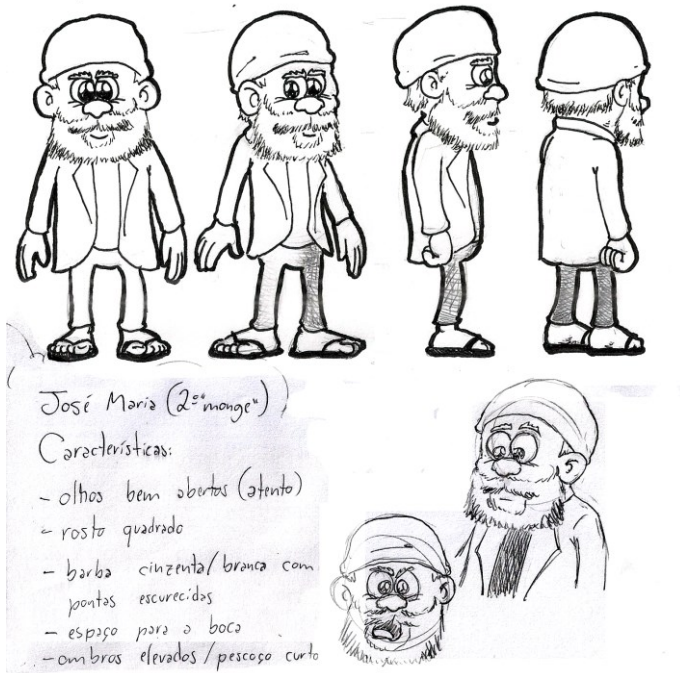 José Maria (2º "monge")
Características:
- olhos bem abertos (atento)
- rosto quadrado
- barba cinzenta/branca com
pontas escurecidas
- espaço para a boca
- ombros elevados/pescoço curto